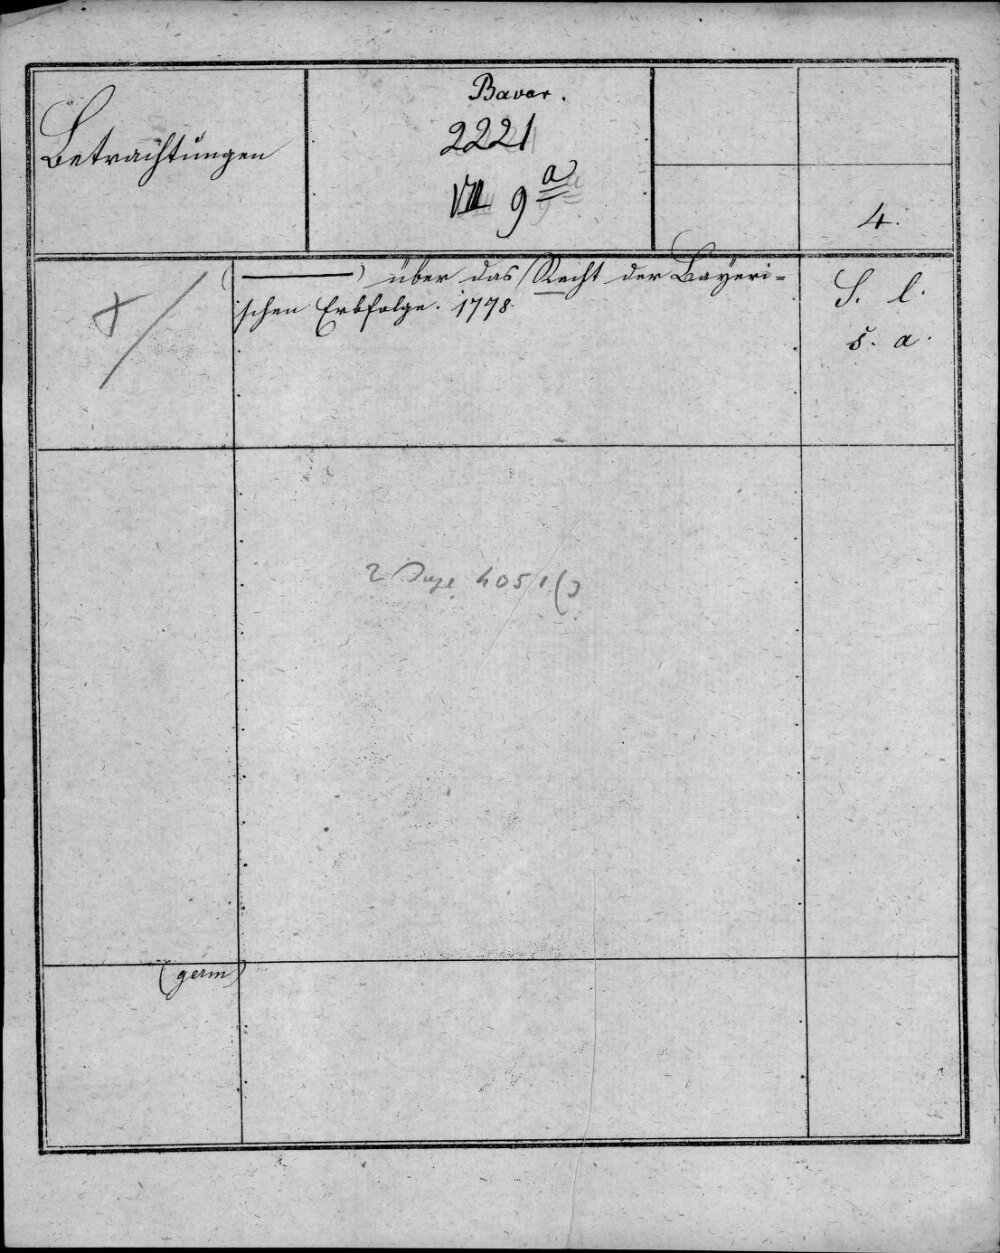 Betrachtungen
Bavar.
2221
VIII 9 a
4.
(———) über das Recht der Bayeri-
schen Erbfolge. 1778.
S. l.
s. a.
2 4051
(germ)